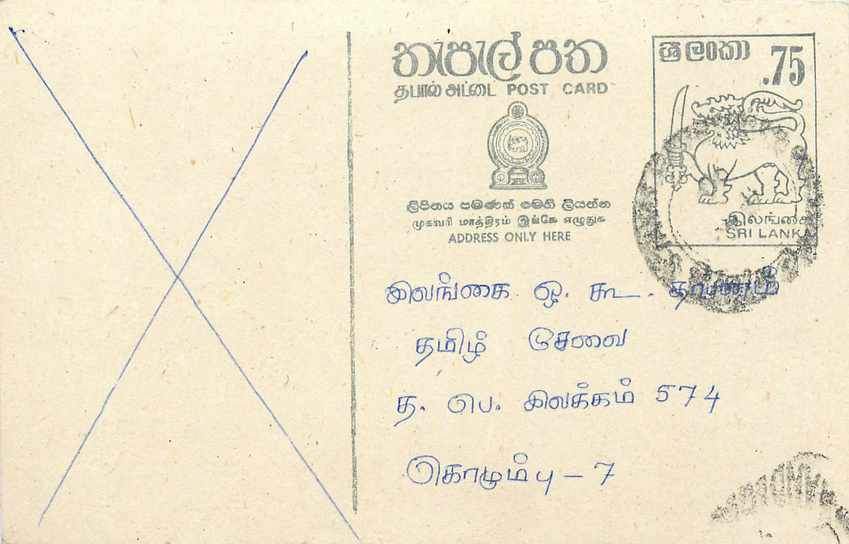 තැපැල් පත
தபால் அட்டை POST CARD
ලිපිනය පමණක් මෙහි ලියන්න
முகவரி மாத்திரம் இங்கே எழுதுக
ADDRESS ONLY HERE
ශ්‍රී ලංකා
.75
இலங்கை
SRI LANKA
இலங்கை ஒ. கூ. தாபனம்
தமிழ் சேவை
த. பெ. இலக்கம் 574
கொழும்பு - 7